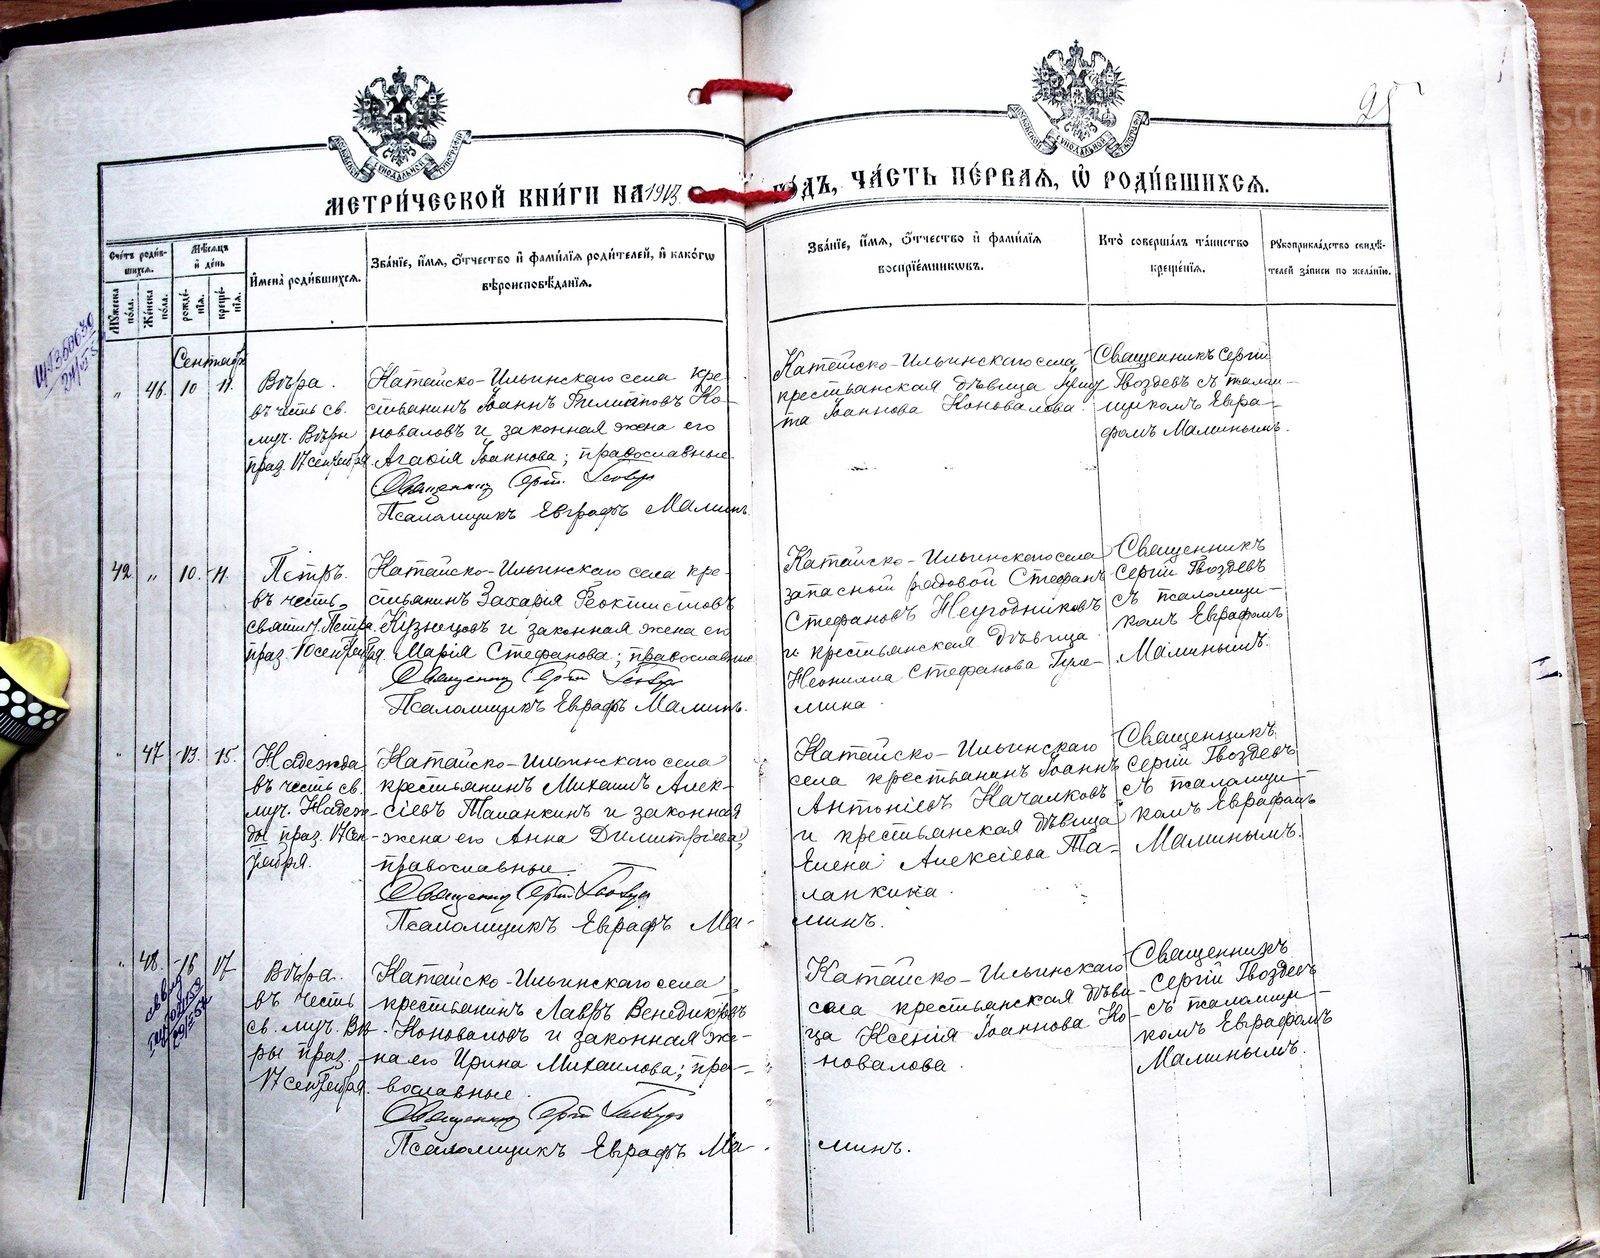 25
МЕТРИ́ЧЕСКОЙ КНИ́ГИ НА 1913 ГО́ДЪ, ЧА́СТЬ ПЕ́РВАЯ, Ѡ҆ РОДИ́ВШИХСЯ.
Сче́тъ роди́в-
шихся.
Мѣ́сяцъ
и҆ де́нь
Мꙋ́жеска по́ла.
Же́нска по́ла.
рожде́-
нїя.
креще́-
нїя.
И҆мена̀ роди́вшихся.
Зва́нїе, и҆́мя, ѻ҆́тчество и҆ фами́лїя роди́телей, и҆ како́гѡ
вѣроисповѣ́данїя.
Зва́нїе, и҆́мя, ѻ҆́тчество и҆ фами́лїя
воспрїе́мникѡвъ.
Кто̀ соверша́лъ та́инство
креще́нїя.
Рꙋкоприкла́дство свидѣ́-
телей за́писи по жела́нїю.
Сентябрь
" 46. 10 11.
Вѣра.
въ честь св.
муч. Вѣры
праз. 17 сентября
Катайско-Ильинскаго села кре-
стьянинъ Іоаннъ Филипповъ Ко-
новаловъ и законная жена его
Агафія Іоаннова; православные.
Священникъ Сергій Гвоздевъ
Псаломщикъ Евграфъ Малинъ.
Катайско-Ильинскаго села
крестьянская дѣвица
та Іоаннова Коновалова.
Священникъ Сергій
Гвоздевъ съ псалом-
щикомъ Евгра-
фомъ Малинымъ.
42. " 10. 11.
Петръ.
въ честь
святит. Петра
праз. 10 сентября.
Катайско-Ильинскаго села кре-
стьянинъ Захарія Феоктистовъ
Кузнецовъ и законная жена его
Марія Стефанова; православные
Священникъ Сергій Гвоздевъ
Псаломщикъ Евграфъ Малинъ.
Катайско-Ильинскаго села
запасный рядовой Стефанъ
Стефановъ Неугодниковъ
и крестьянская дѣвица
Неонилла Стефанова
мина.
Священникъ
Сергій Гвоздевъ
съ псаломщи-
комъ Евграфомъ
Малинымъ.
" 47 13. 15.
Надежда
въ честь св.
муч. Надеж-
ды праз. 17 сен-
тября.
Катайско-Ильинскаго села
крестьянинъ Михаилъ Алек-
сіевъ Талапкинъ и законная
жена его Анна Димитріева;
православные.
Священникъ Сергій Гвоздевъ
Псаломщикъ Евграфъ Ма-
Катайско-Ильинскаго
села крестьянинъ Іоаннъ
Антоніевъ Качалковъ
и крестьянская дѣвица
Елена Алексіева Та-
лапкина.
линъ.
Священникъ
Сергій Гвоздевъ
съ псаломщи-
комъ Евграфомъ
Малинымъ.
" 48. 16 17
Вѣра.
въ честь
св. муч. Вѣ-
ры праз.
17 сентября.
Катайско-Ильинскаго села
крестьянинъ Лавръ Венедиктовъ
Коноваловъ и законная же-
на его Ирина Михаилова; пра-
вославные.
Священникъ Сергій Гвоздевъ
Псаломщикъ Евграфъ Ма-
Катайско-Ильинскаго
села крестьянская дѣви-
ца Ксенія Іоаннова Ко-
новалова.
линъ.
Священникъ
Сергій Гвоздевъ
съ псаломщи-
комъ Евграфомъ
Малинымъ.